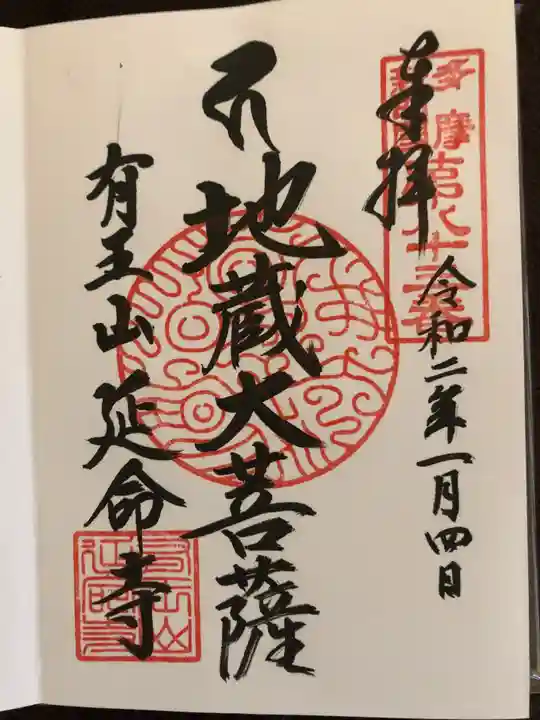 奉拝
令和二年一月四日
多摩
地蔵大菩薩
有王山 延命寺